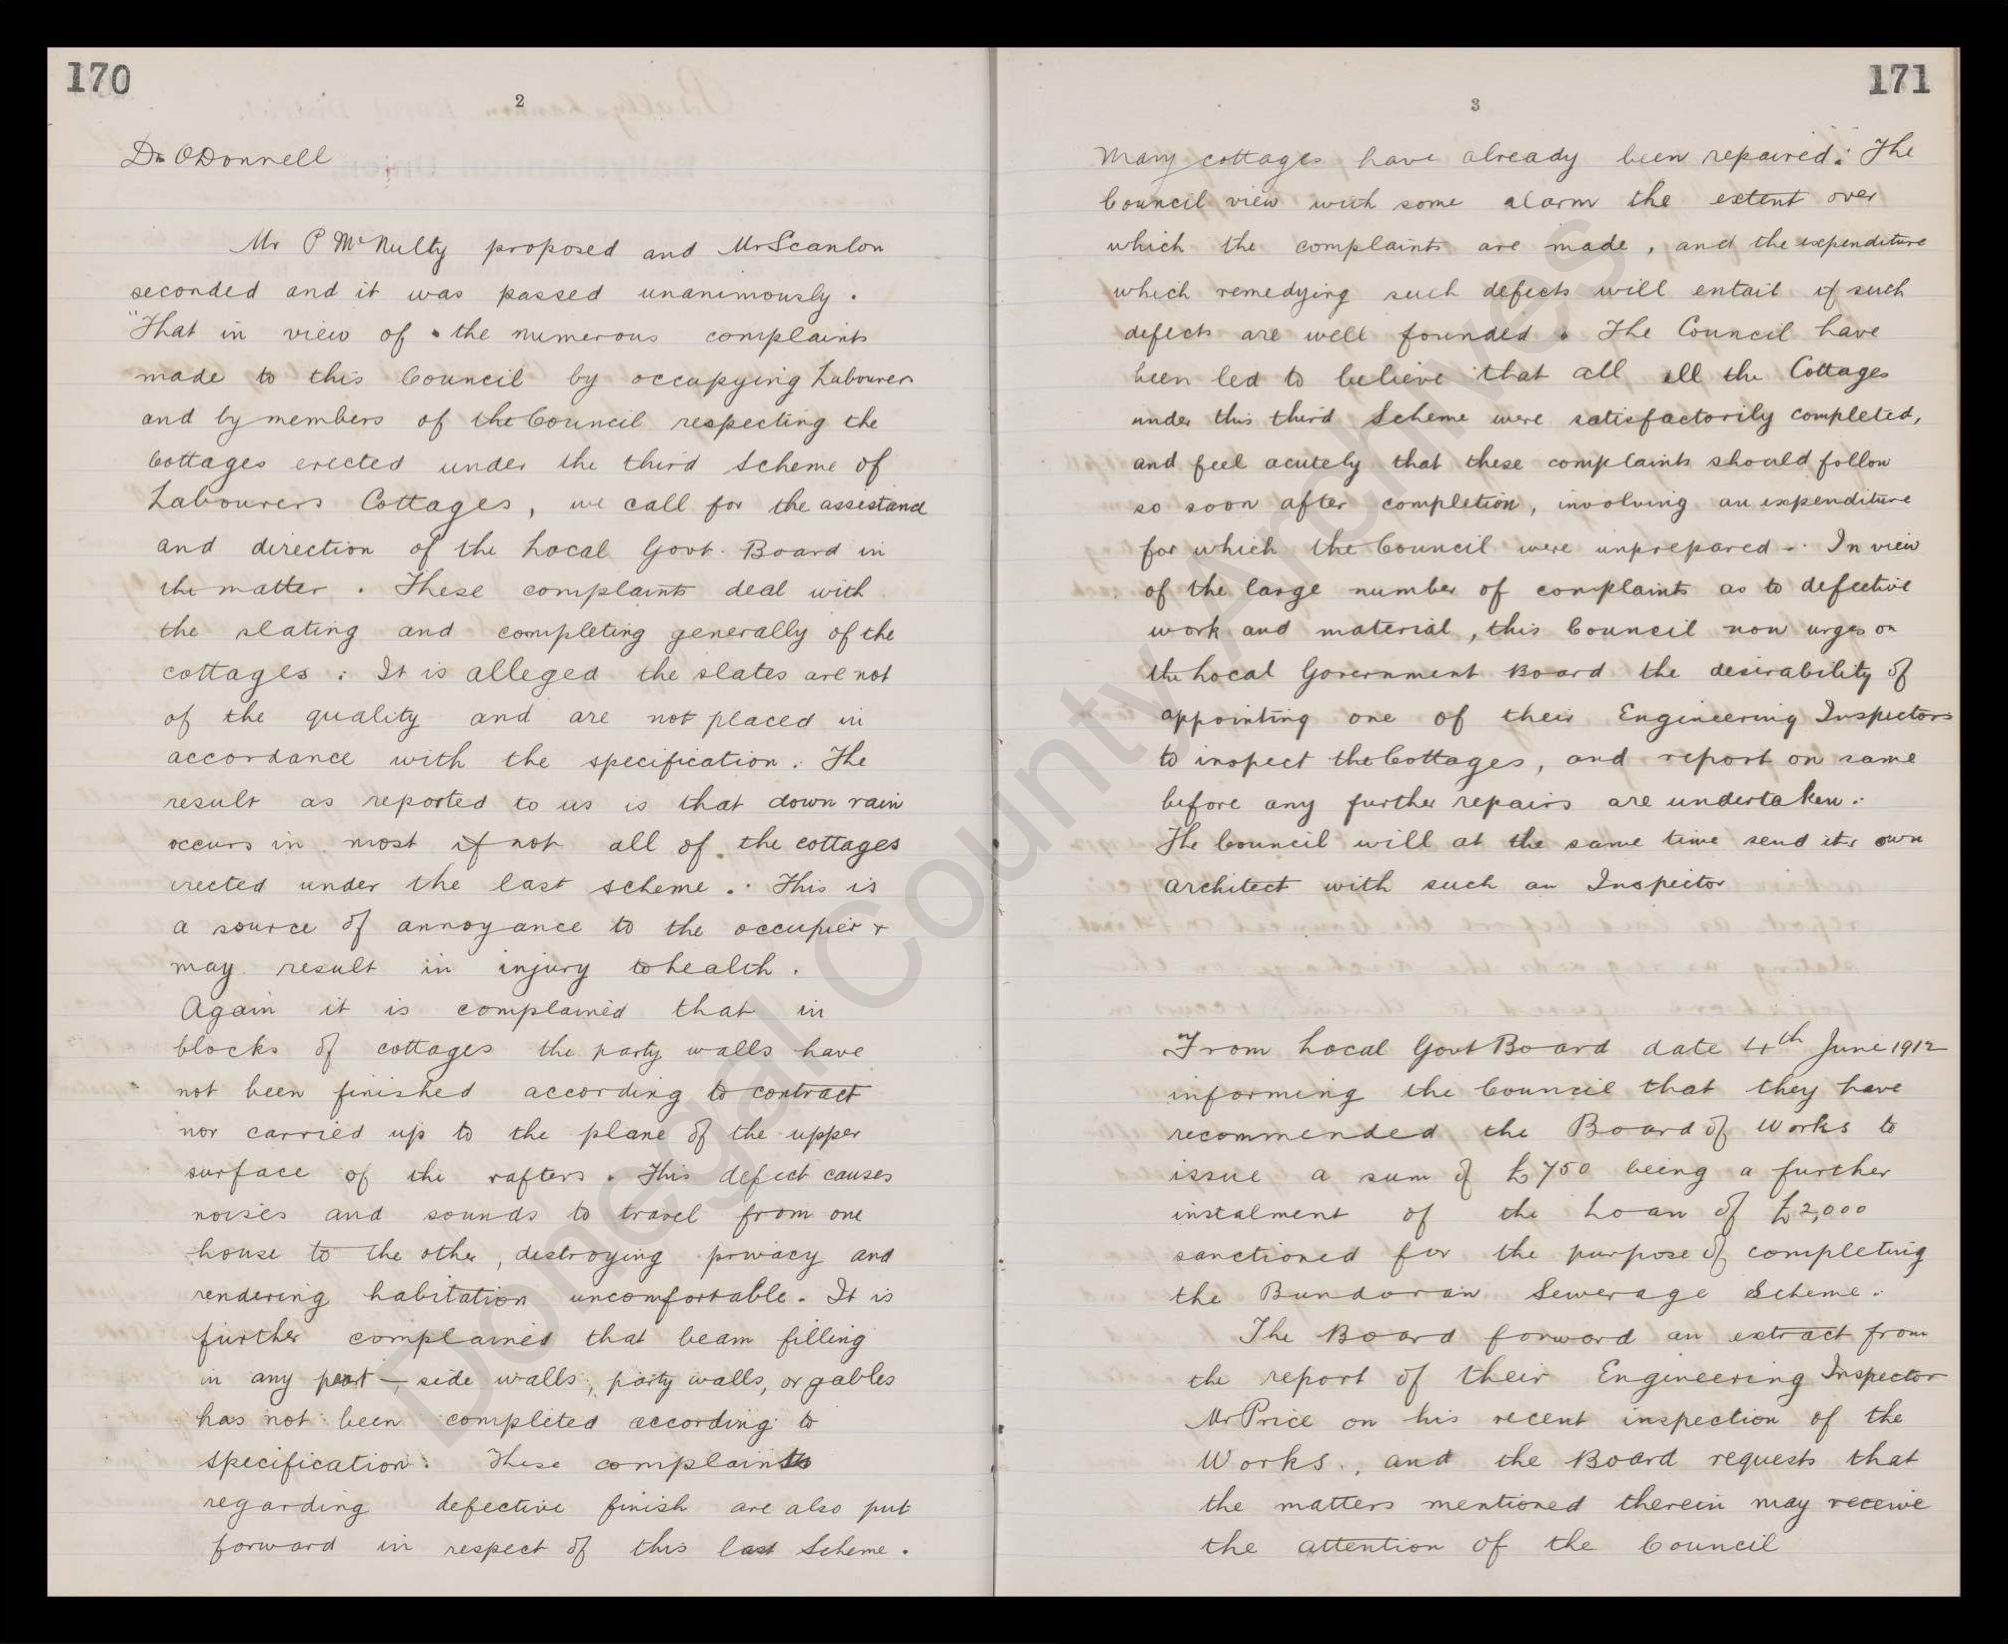 170
2
Dr ODonnell
Mr P McNulty proposed and Mr Scanlon
seconded and it was passed unanimously.
"That in view of the numerous complaints
made to this Council by occupying Labourers
and by members of the Council respecting the
Cottages erected under the third Scheme of
Labourers Cottages, we call for the assistance
and direction of the Local Govt. Board in
the matter. These complaints deal with
the slating and completing generally of the
cottages: It is alleged the slates are not
of the quality and are not placed in
accordance with the specification. The
result as reported to us is that down rain
occurs in most if not all of the cottages
erected under the last scheme. This is
a source of annoyance to the occupier &
may result in injury to health.
Again it is complained that in
blocks of cottages the party walls have
not been finished according to contract
nor carried up to the plane of the upper
surface of the rafters. This defect causes
noises and sounds to travel from one
house to the other, destroying privacy and
rendering habitation uncomfortable. It is
further complained that beam filling
in any part – side walls, party walls, or gables
has not been completed according to
specification. These complaints
regarding defective finish are also put
forward in respect of this last Scheme.
171
3
Many cottages have already been repaired. The
Council view with some alarm the extent over
which the complaints are made, and the expenditure
which remedying such defects will entail if such
defects are well founded. The Council have
been led to believe that all all the Cottages
under this third Scheme were satisfactorily completed,
and feel acutely that these complaints should follow
so soon after completion, involving an expenditure
for which the Council were unprepared. In view
of the large number of complaints as to defective
work and material, this Council now urges on
the Local Government Board the desirability of
appointing one of their Engineering Inspectors
to inspect the Cottages, and report on same
before any further repairs are undertaken.
The Council will at the same time send its own
architect with such an Inspector
From Local Govt Board date 4th June 1912
informing the Council that they have
recommended the Board of Works to
issue a sum of £750 being a further
instalment of the Loan of £2,000
sanctioned for the purpose of completing
the Bundoran Sewerage Scheme.
The Board forward an extract from
the report of their Engineering Inspector
Mr Price on his recent inspection of the
Works, and the Board requests that
the matters mentioned therein may receive
the attention of the Council
Donegal County Archives